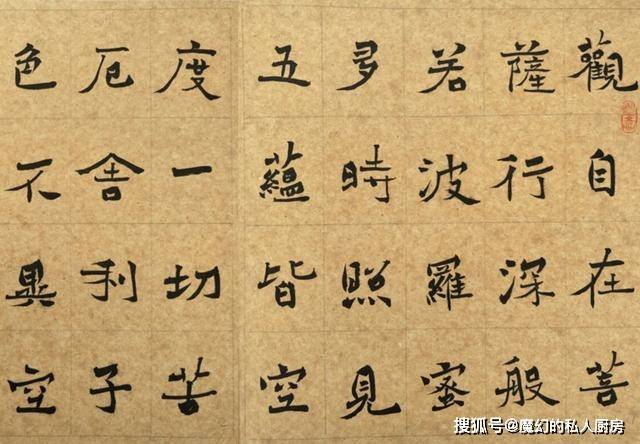 觀自在菩
薩行深般
若波羅蜜
多時照見
五蘊皆空
度一切苦
厄舍利子
色不異空
搜狐号@魔幻的私人厨房